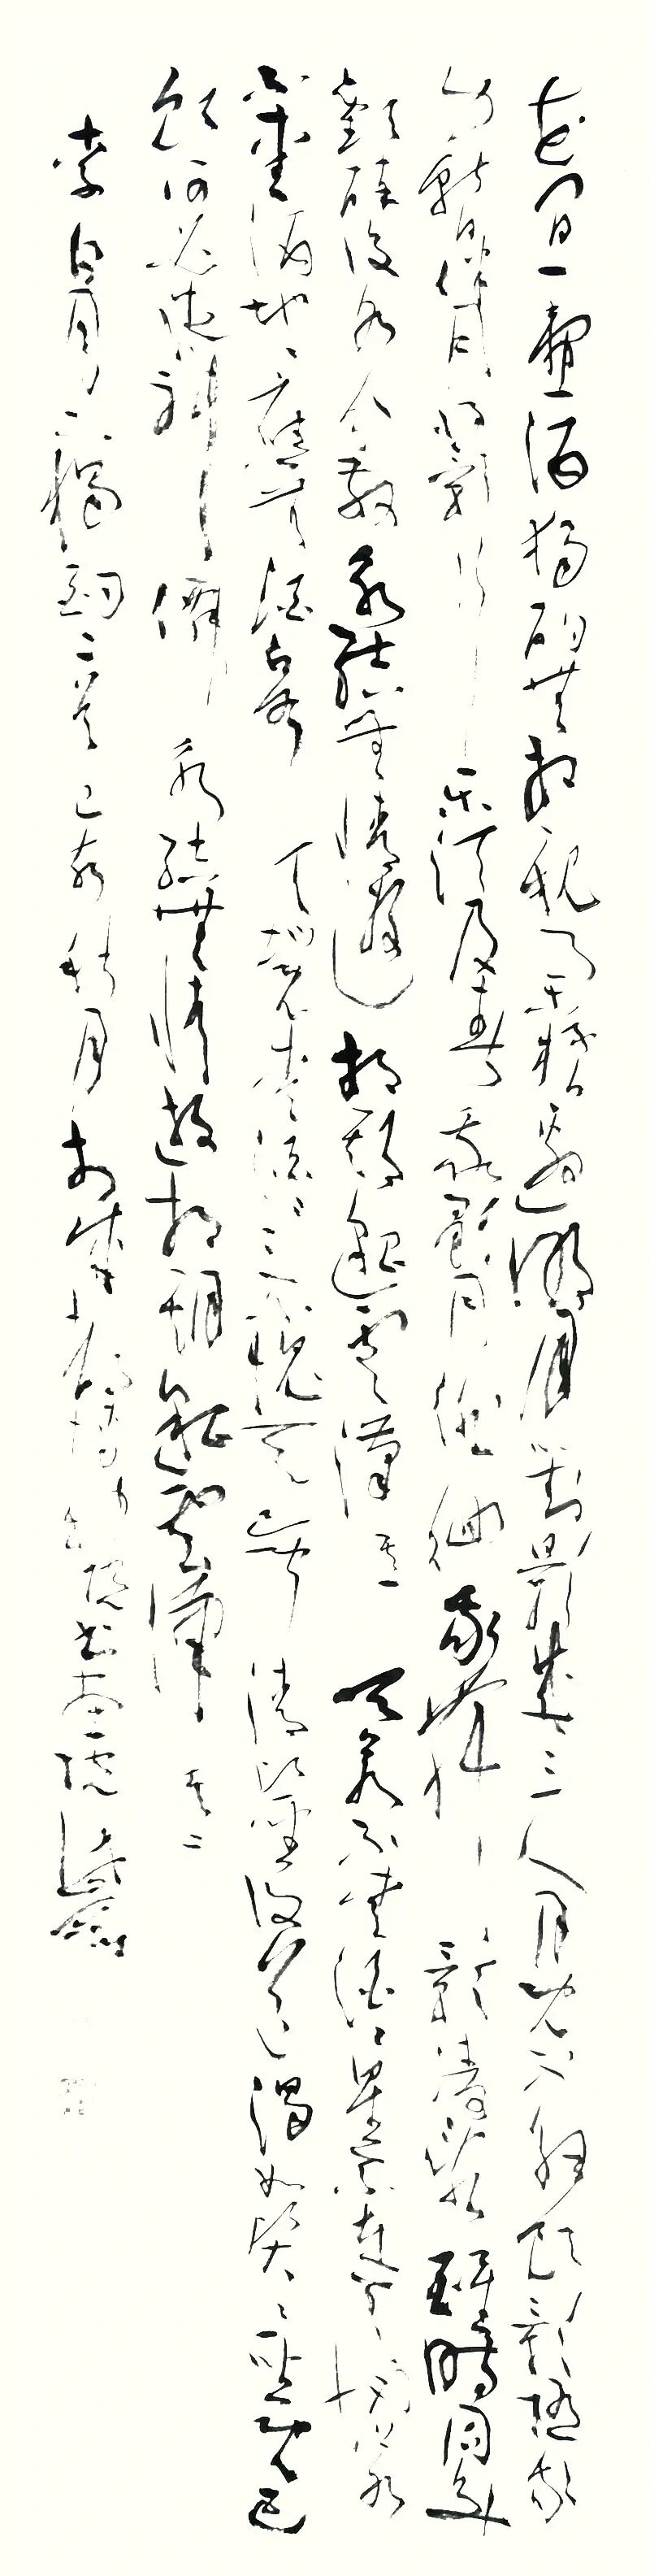 花間一壺酒獨酌無相親舉杯邀明月對影成三人月既不解飲影隨我
身暫伴月將影行樂須及春我歌月徘徊我舞影零亂醒時同交
歡醉後各分散永結無情遊相期邈雲漢其一天若不愛酒酒星不在天地若
不愛酒地應無酒泉天地既愛酒愛酒不愧天已聞清比聖復道濁如賢賢聖既已
飲何必求神僊永結無情遊相期邈雲漢其二
李白月下獨酌二首己亥秋月於成都書畫院